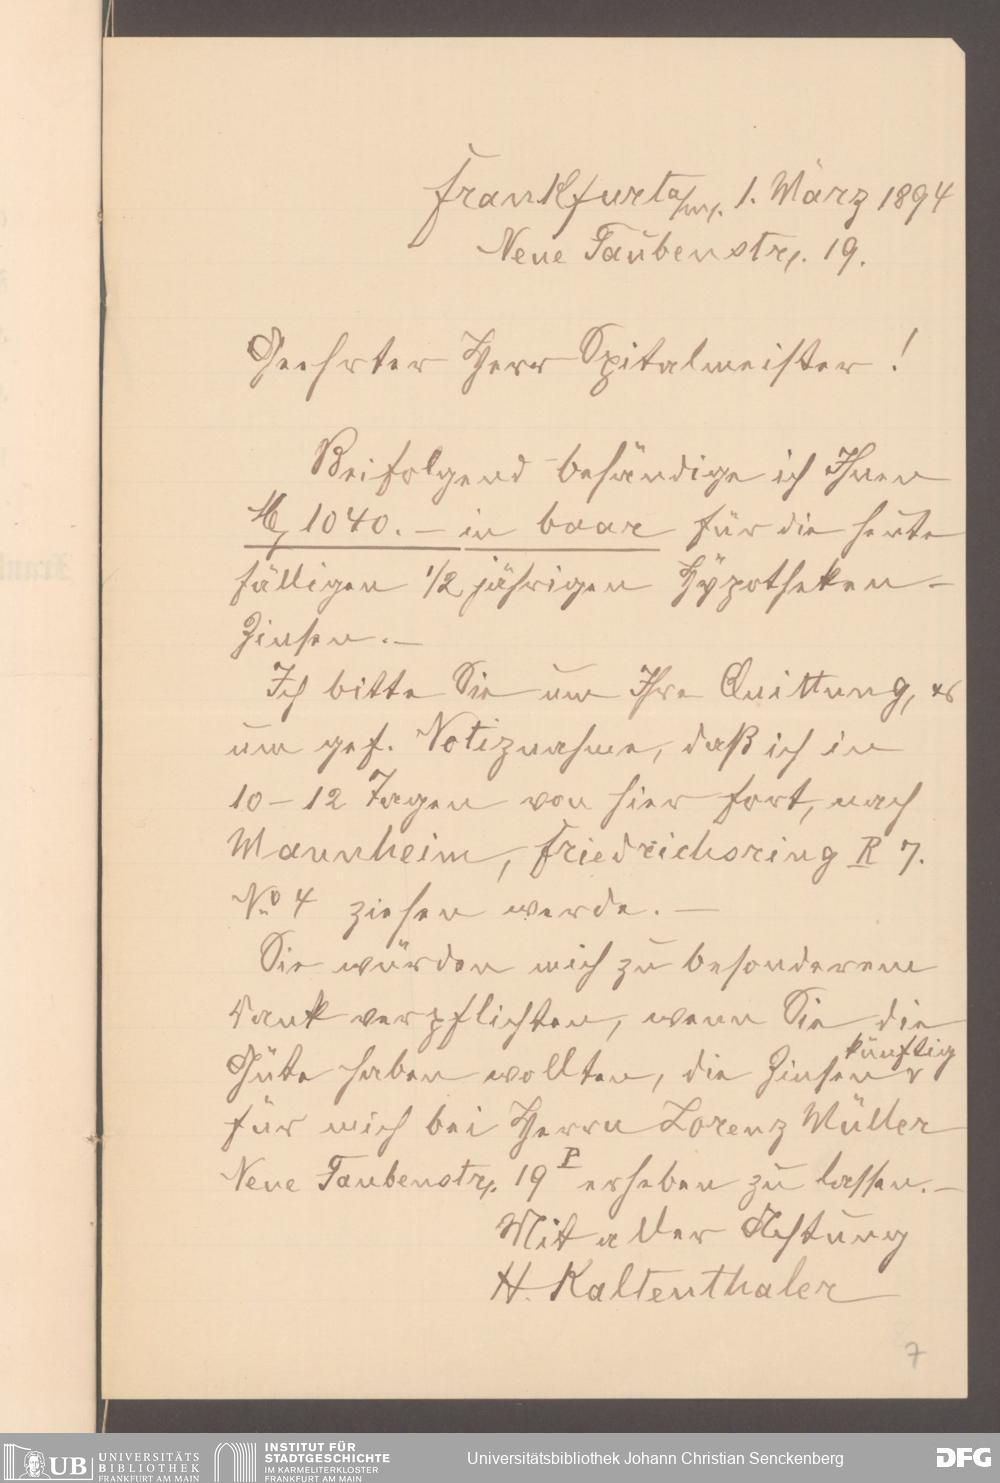 Frankfurt a/m. 1. März 1894
Neue Taubenstr. 19.
Geehrter Herr Spitalmeister!
Beifolgend behändige ich Ihnen
M 1040.– in baar für die heute
fälligen 1/2 jährigen Hypotheken-
Zinsen.–
Ich bitte Sie um Ihre Quittung, &
um gef. Notiznahme, daß ich in
10–12 Tagen von hier fort, nach
Mannheim, Friedrichsring R 7.
No 4 ziehen werde.–
Sie würden mich zu besonderem
Dank verpflichten, wenn Sie die
künftig
Güte haben wollten, die Zinsen
für mich bei Herrn Lorenz Müller
Neue Taubenstr. 19 P erheben zu lassen.–
Mit aller Achtung
H. Kaltenthaler
7
UB UNIVERSITÄTS
BIBLIOTHEK
FRANKFURT AM MAIN
INSTITUT FÜR
STADTGESCHICHTE
IM KARMELITERKLOSTER
FRANKFURT AM MAIN
Universitätsbibliothek Johann Christian Senckenberg
DFG